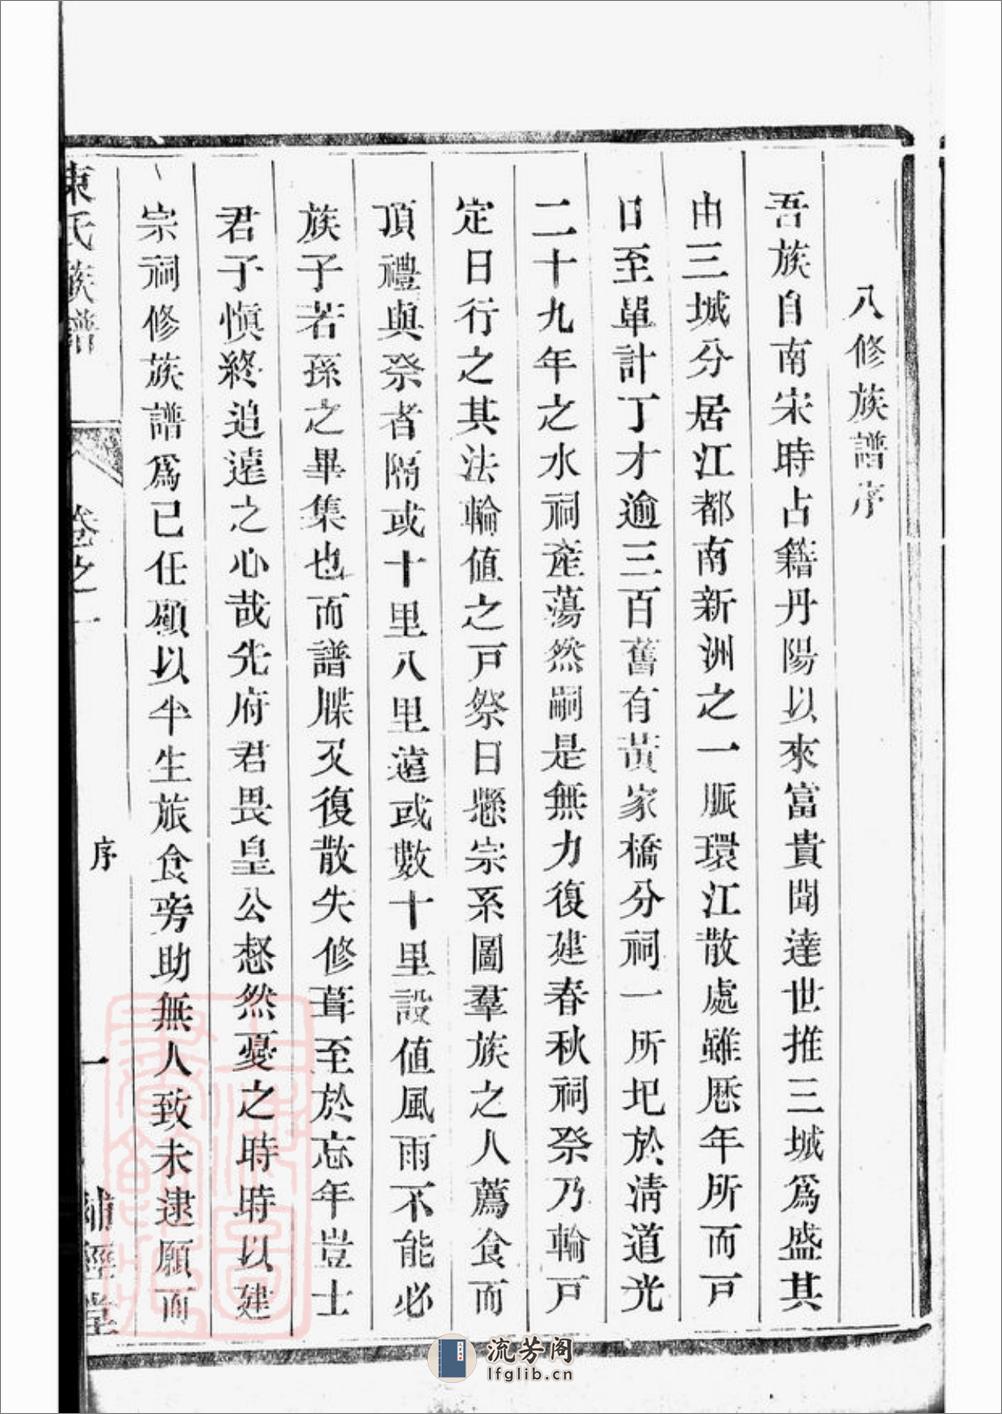 八修族譜序
吾族自南宋時占籍丹陽以來富貴聞達世推三城爲盛其
由三城分居江都南新洲之一脈環江散處雖歷年所而戶
口至單計丁才逾三百舊有黃家橋分祠一所圮於淸道光
二十九年之水祠產蕩然嗣是無力復建春秋祠祭乃輪戶
定日行之其法輪值之戸祭日懸宗系圖羣族之人薦食而
頂禮與祭者隔或十里八里遠或數十里設值風雨不能必
族子若孫之畢集也而譜牒又復散失修葺至於忘年豈士
君子愼終追遠之心哉先府君畏皇公惄然憂之時時以建
宗祠修族譜爲己任顧以半生旅食旁助無人致未逮願而
東氏族譜
卷之一
序
一
補經堂
流芳阁
lfglib.cn